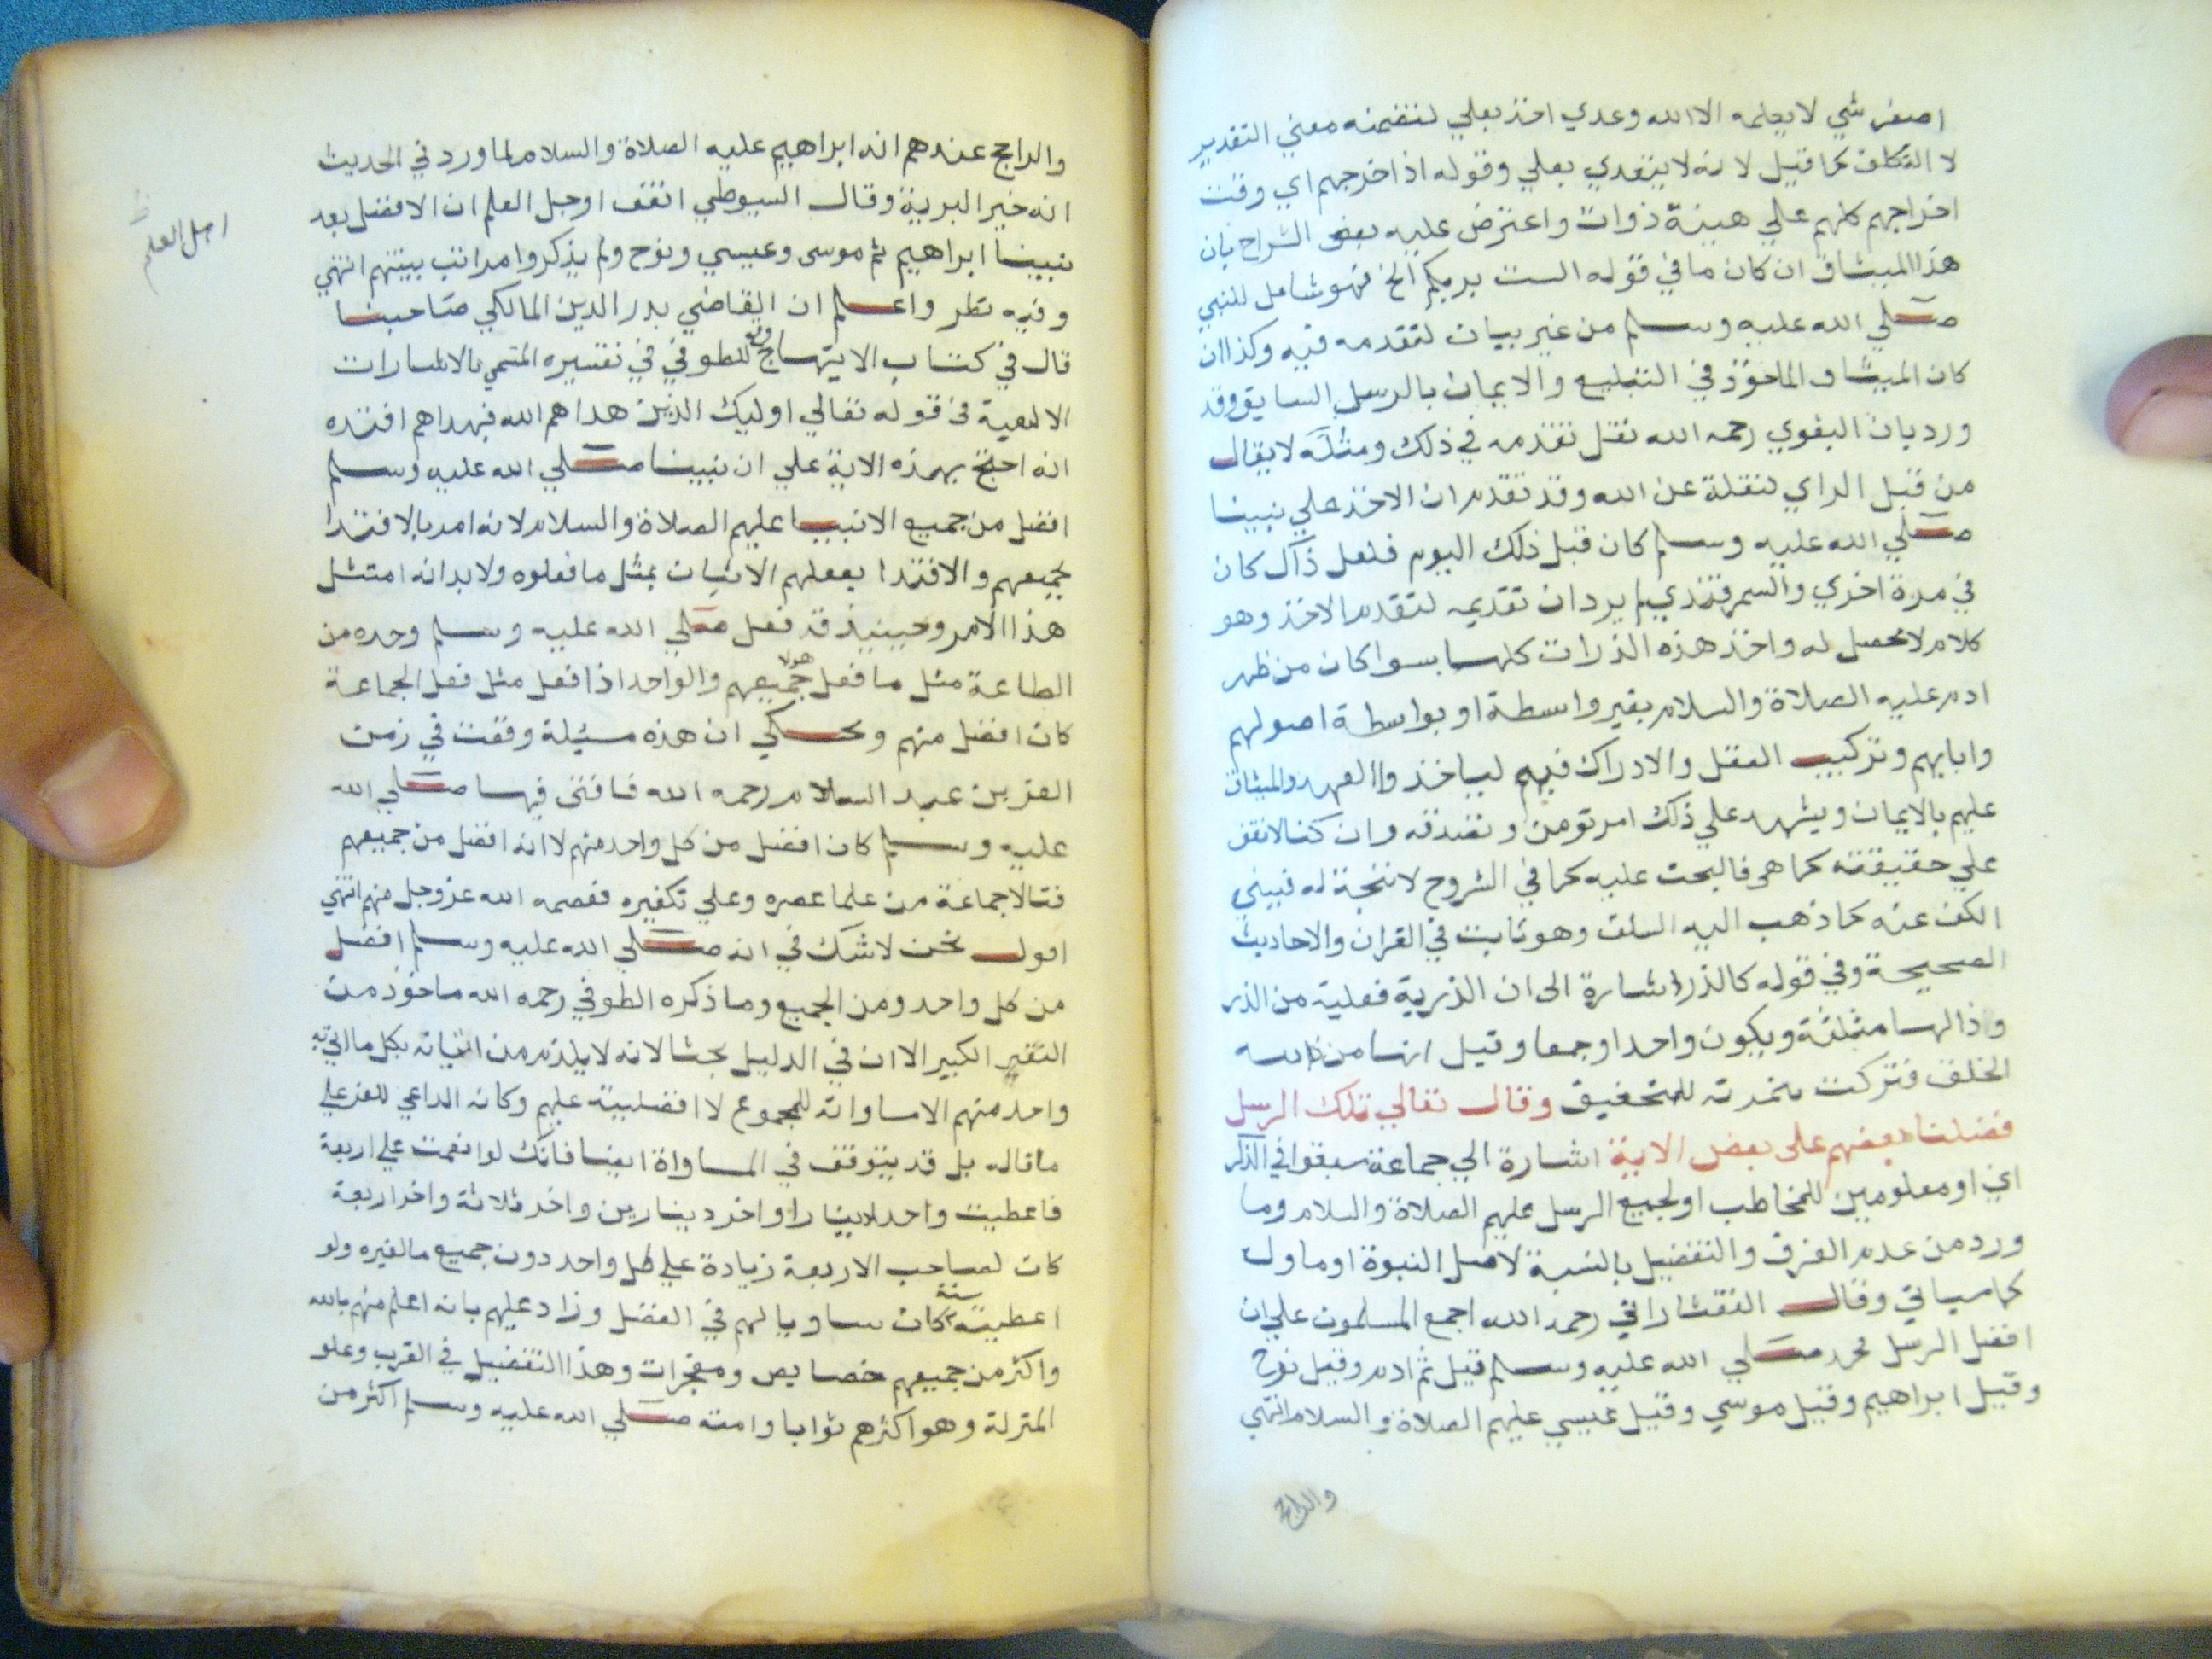 اصغر شي لا يعلمه الا الله وعدي اخذ بعلي لتضمنه معني التقدير
لا التكلف كما قيل لانه لا يتعدي بعلي وقوله اذ اخرجهم اي وقت
اخراجهم كلهم علي هيئة ذوات واعترض عليه بعض الشراح بان
هذا الميثاق ان كان ما في قوله الست بربكم الخ فهو شامل للنبي
صلي الله عليه وسلم من غير بيان لتقدمه فيه وكذا ان
كان الميثاق الماخوذ في التبليغ والايمان بالرسل السابق وقد
ورد بان البغوي رحمه الله نقل تقدمه في ذلك ومثله لا يقال
من قبل الراي لنقلة عن الله وقد تقدم ان الاخذ علي نبينا
صلي الله عليه وسلم كان قبل ذلك اليوم فلعل ذاك كان
في مرة اخري والسمرقندي لم يرد ان تقديمه لتقدم الاخذ وهو
كلام لا محصل له واخذ هذه الذرات كلها سوا كان من ظهر
ادم عليه الصلاة والسلام بغير واسطة او بواسطة اصولهم
وابايهم وتركيب العقل والادراك فيهم لياخذوا العهد والميثاق
عليهم بالايمان ويشهد علي ذلك امر تومن وتصدقه وان كنا لا نقف
علي حقيقته كما هي فالبحث عليه كما في الشروح لا نتيجة له فينبني
الكف عنه كما ذهب اليه السلف وهو ثابت في القران والاحاديث
الصحيحة وفي قوله كالذر اشارة الي ان الذرية فعلية من الذر
وذالها مثلثة ويكون واحدا وجمعا وقيل انها من ذرا الله
الخلف فتركت همزته للتخفيف وقال تعالي تلك الرسل
فضلنا بعضهم علي بعض الاية اشارة الي جماعة سبقوا في الذكر
اي او معلومين للمخاطب او لجميع الرسل عليهم الصلاة والسلام وما
ورد من عدم الفرق والتفضيل بالنسبة لاصل النبوة او ماول
كما سياتي وقال التفتازاني رحمه الله اجمع المسلمون علي ان
افضل الرسل محمد صلي الله عليه وسلم قيل ثم ادم وقيل نوح
وقيل ابراهيم وقيل موسي وقيل عيسي عليهم الصلاة والسلام انتهي
والراجح
والراجح عندهم انه ابراهيم عليه الصلاة والسلام لما ورد في الحديث
انه خير البرية وقال السيوطي اتفق اوجل العلم ان الافضل بعد
اهل العلم
نبينا ابراهيم ثم موسي وعيسي ونوح ولم يذكروا مراتب بينهم انتهي
وفيه نظر واعلم ان القاضي بدر الدين المالكي صاحبنا
قال في كتاب الابتهاج للطوفي في تفسيره المسمي بالاشارات
الالهية في قوله تعالي اوليك الذين هداهم الله فبهداهم اقتده
انه احتج بهذه الاية علي ان نبينا صلي الله عليه وسلم
افضل من جميع الانبيا عليهم الصلاة والسلام لانه امر بالاقتدا
بجميعهم والاقتدا بفعلهم الاتيان بمثل ما فعلوه ولا بد انه امتثل
هذا الامر وحينيذ قد فعل صلي الله عليه وسلم وحده من
الطاعة مثل ما فعل هولا جميعهم والواحد اذا فعل مثل فعل الجماعة
كان افضل منهم ويحكي ان هذه مسيلة وقعت في زمن
العز بن عبد السلام رحمه الله فافتي فيها صلي الله
عليه وسلم كان افضل من كل واحد منهم لا انه افضل من جميعهم
فتمالا جماعة من علما عصره وعلي تكفيره فعصمه الله عز وجل منهم انتهي
اقول نحن لا شك في انه صلي الله عليه وسلم افضل
من كل واحد ومن الجميع وما ذكره الطوفي رحمه الله ماخوذ من
التفسير الكبير الا ان في الدليل بحثا لانه لا يلزم من اتيانه بكل ما اتي به
واحد منهم الا مساواته للمجموع لا افضليته عليهم وكانه الداعي للعز علي
ما قاله بل قد يتوقف في المساواة ايضا فانك لو انعمت علي اربعة
فاعطيت واحدا دينارا واخر دينارين واخر ثلاثة واخر اربعة
كان لصاحب الاربعة زيادة علي كل واحد دون جميع ما لغيره ولو
اعطيته ستة كان مساويا لهم في الفضل وزاد عليهم بانه اعلم منهم بالله
واكثر من جميعهم خصايص ومعجزات وهذا التفضيل في القرب وعلو
المنزلة وهو اكثرهم ثوابا وامته صلي الله عليه وسلم اكثر من